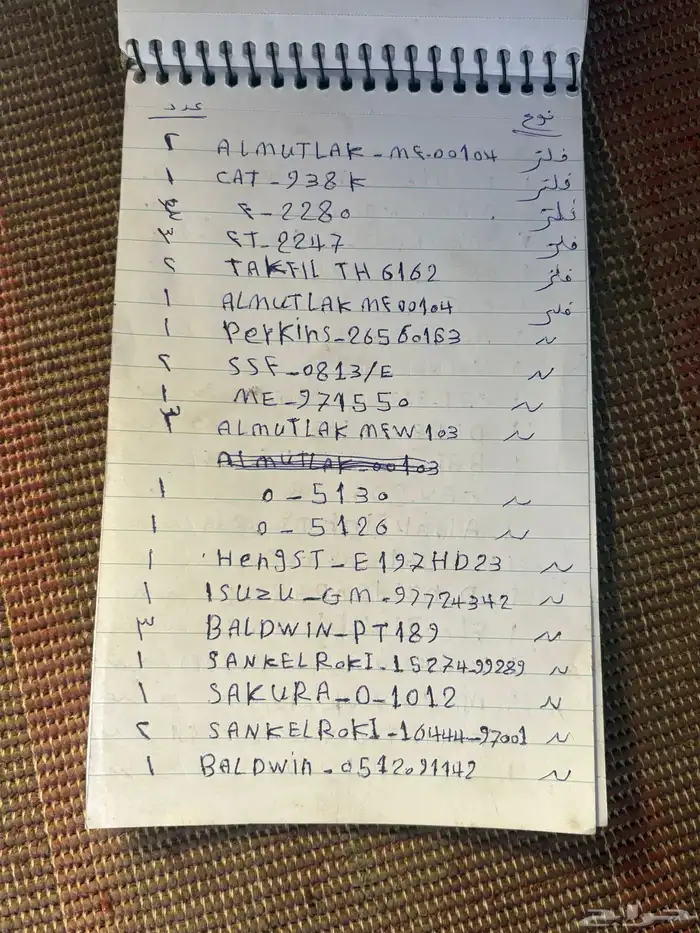 نوع عدد
فلتر ALMUTLAK - MF-00104 ٢
فلتر CAT - 938K ١
فلتر F-2280
فلتر FT-2247 ٣
فلتر TAKFIL TH 6162 ٢
فلتر ALMUTLAK MF00104 ١
~ Perkins-26560163 ١
~ SSF-0813/E ٢
~ ME-971550 ١
~ ALMUTLAK MFW 103 ٣
~ O-5130 ١
~ O-5126 ١
~ HengST-E197HD23 ١
~ ISUZU-GM-97724342 ١
~ BALDWIN-PT189 ٣
~ SANKELROKI-15274-99289 ١
~ SAKURA-O-1012 ١
~ SANKELROKI-16444-97001 ٢
~ BALDWin-0512091142 ١
حراج